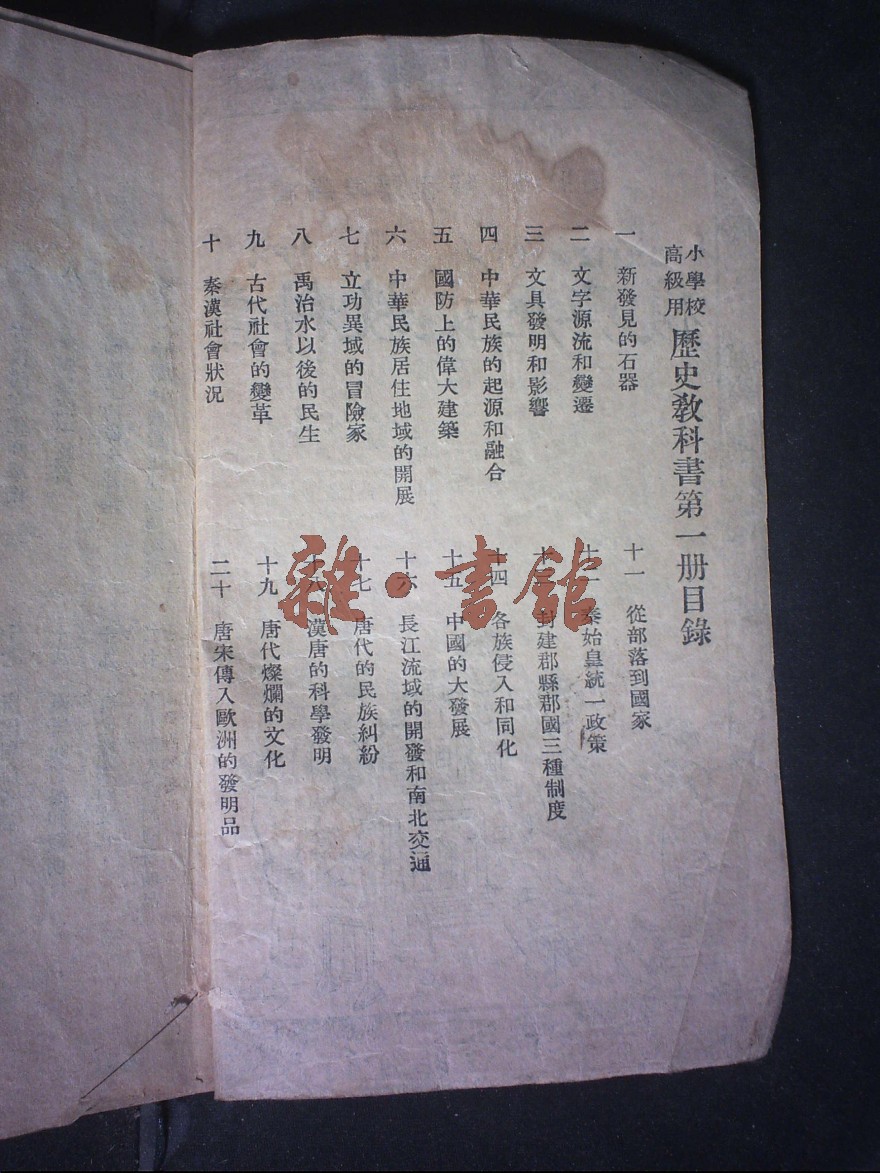 小學校高級用 歷史教科書第一册目錄
一 新發見的石器
二 文字源流和變遷
三 文具發明和影響
四 中華民族的起源和融合
五 國防上的偉大建築
六 中華民族居住地域的開展
七 立功異域的冒險家
八 禹治水以後的民生
九 古代社會的變革
十 秦漢社會狀況
十一 從部落到國家
十二 秦始皇統一政策
十三 封建郡縣郡國三種制度
十四 各族侵入和同化
十五 中國的大發展
十六 長江流域的開發和南北交通
十七 唐代的民族糾紛
十八 漢唐的科學發明
十九 唐代燦爛的文化
二十 唐宋傳入歐洲的發明品
雜·書館